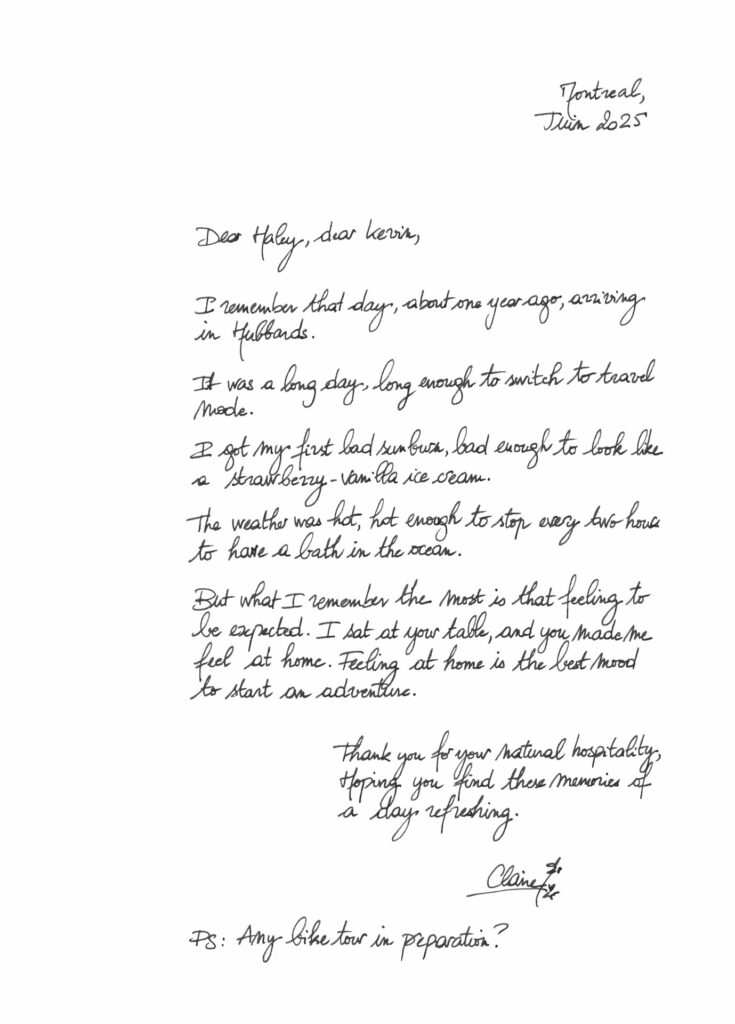 Montreal,
Juin 2025
Dear Haley, dear Kevin,
I remember that day, about one year ago, arriving
in Hubbards.
It was a long day, long enough to switch to travel
mode.
I got my first bad sunburn, bad enough to look like
a strawberry-vanilla ice cream.
The weather was hot, hot enough to stop every two hours
to have a bath in the ocean.
But what I remember the most is that feeling to
be expected. I sat at your table, and you made me
feel at home. Feeling at home is the best mood
to start an adventure.
Thank you for your natural hospitality,
Hoping you find these memories of
a day refreshing.
Claire
PS: Any bike tour in preparation?